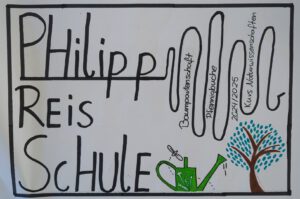 PHilipp
REis
ScHULE
Baumpatenschaft
Pflanzbuche
2024/2025
Kurs Naturwissenschaften